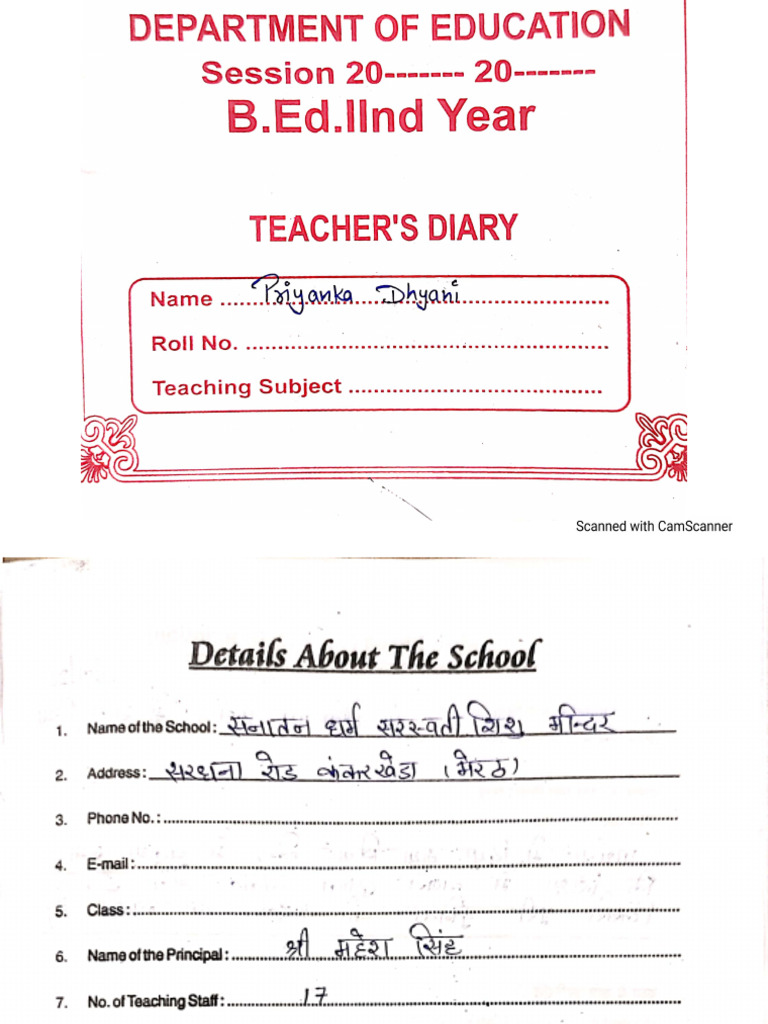 DEPARTMENT OF EDUCATION
Session 20------- 20-------
B.Ed.IInd Year
TEACHER'S DIARY
Name ..... Priyanka Dhyani .....
Roll No. .....
Teaching Subject .....
Scanned with CamScanner
Details About The School
1. Name of the School: सनातन धर्म सरस्वती शिशु मन्दिर
2. Address: सरधना रोड कंकरखेडा (मेरठ)
3. Phone No.: .....
4. E-mail: .....
5. Class: .....
6. Name of the Principal: श्री महेश सिंह
7. No. of Teaching Staff: 17